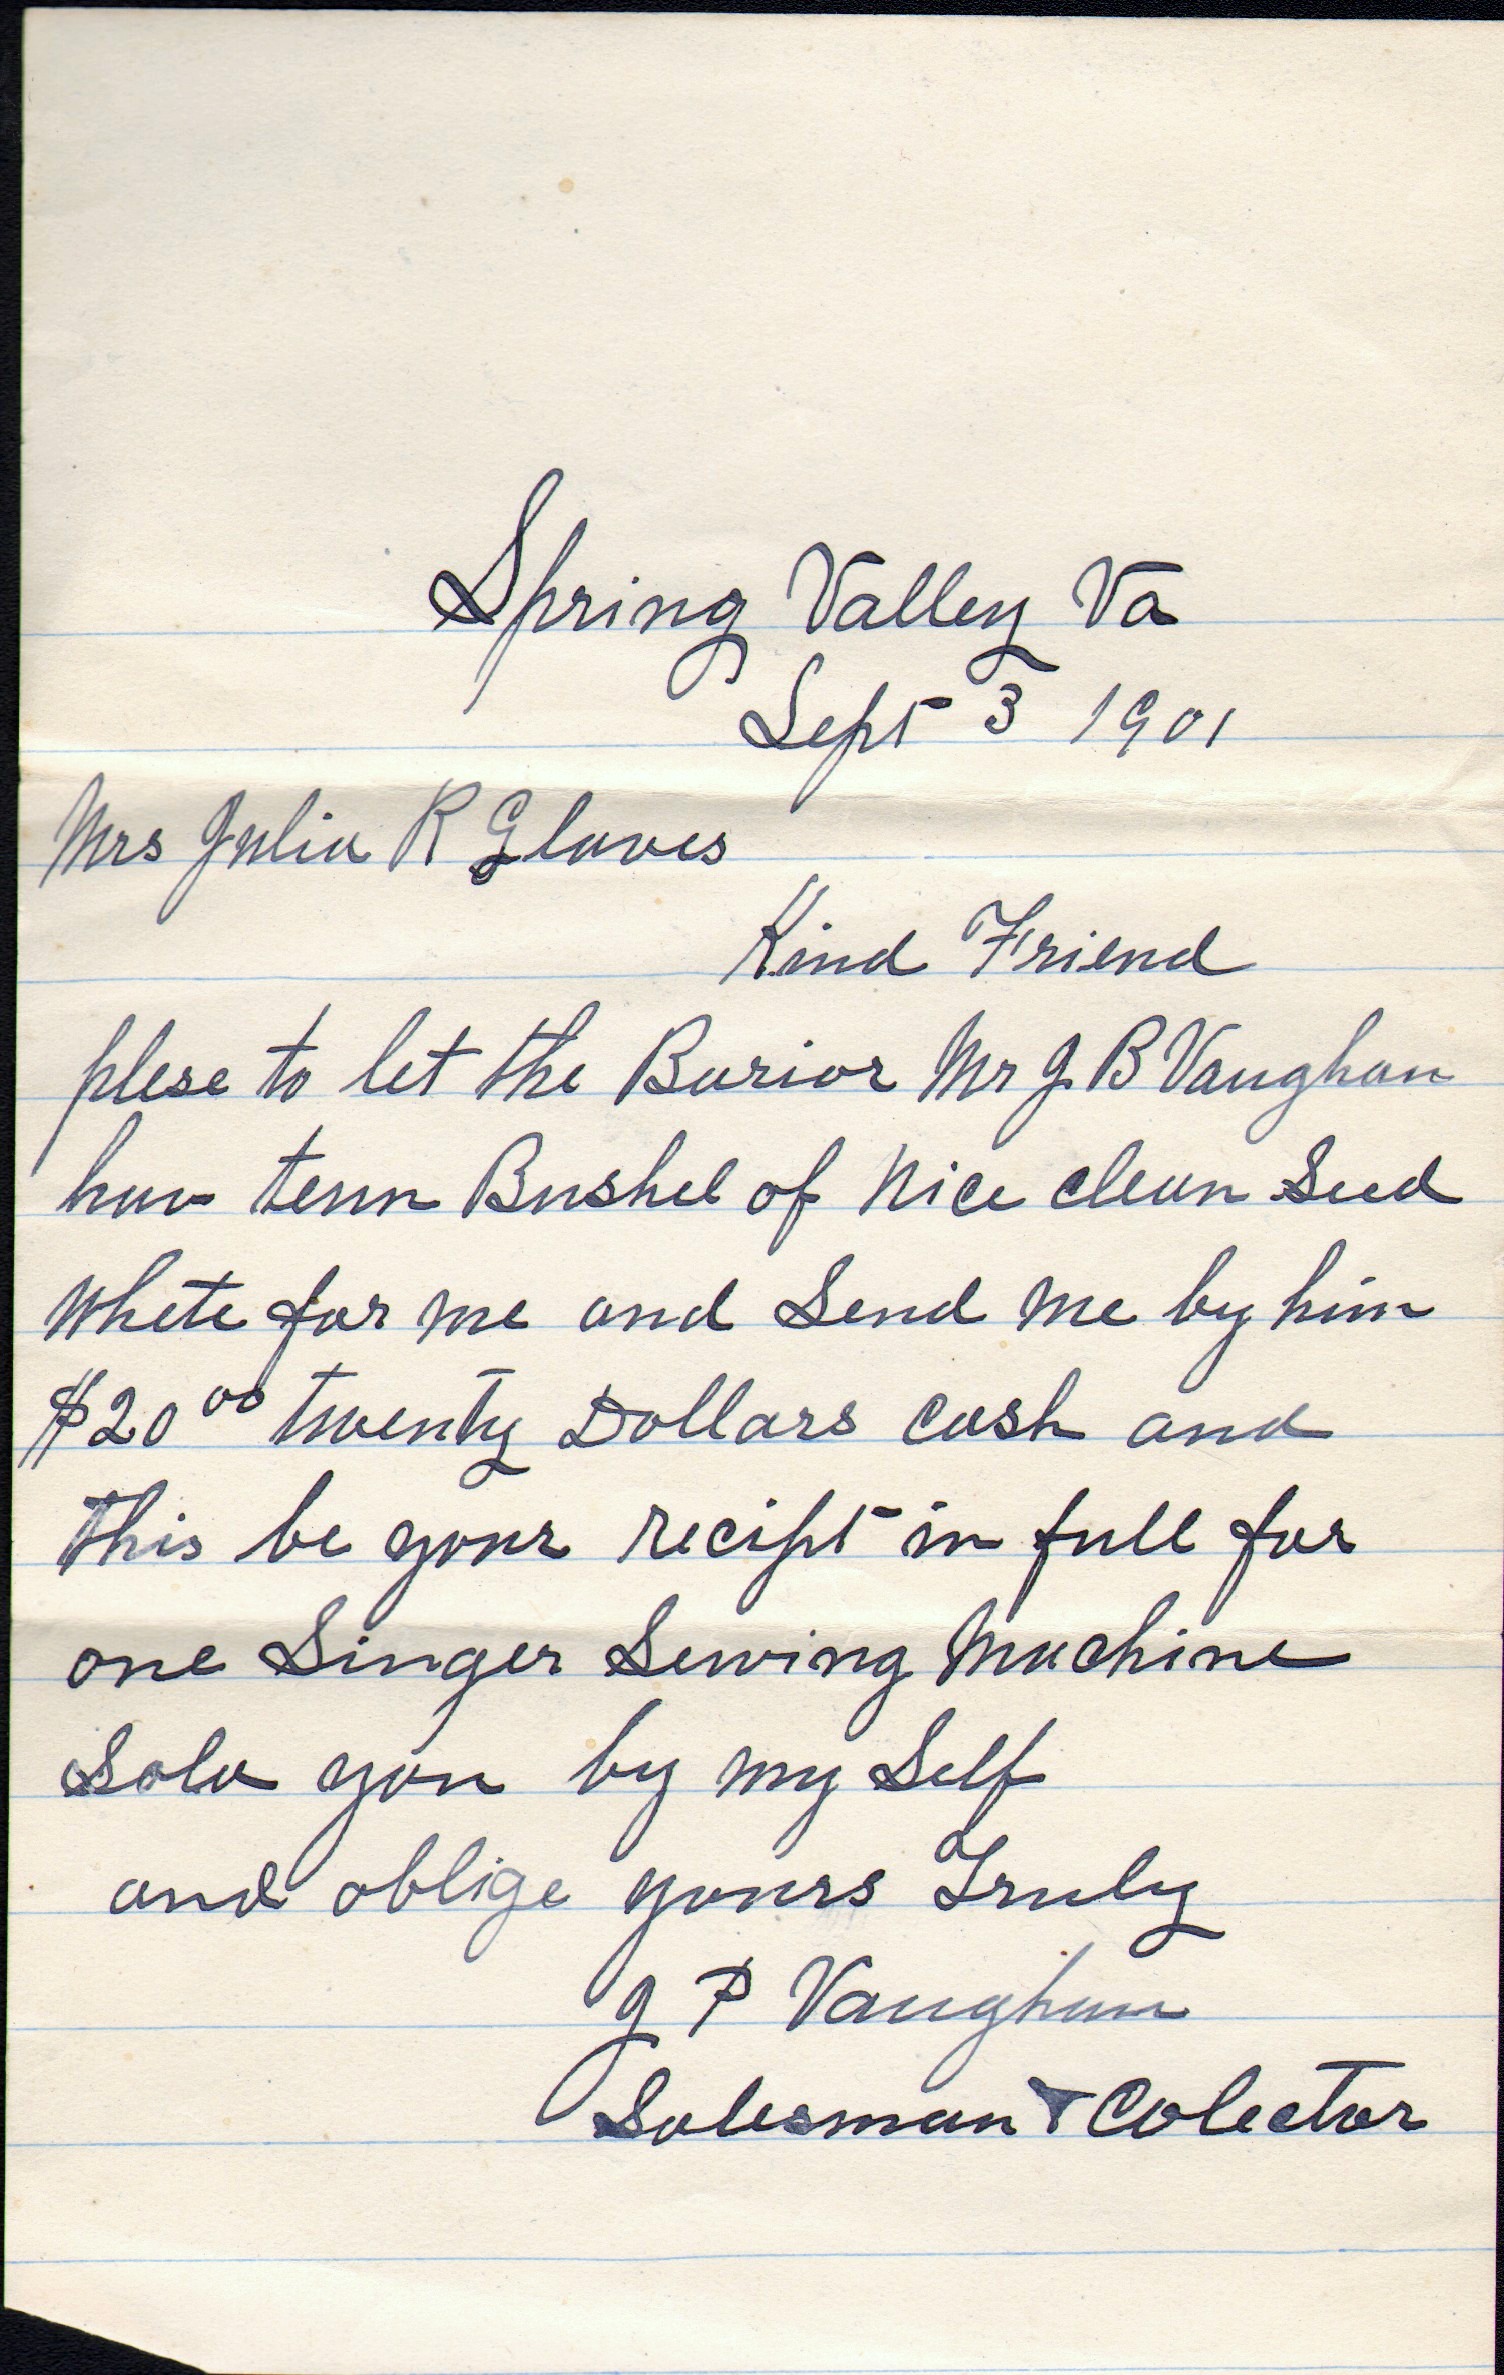 Spring Valley Va
Sept 3 1901
Mrs Julia R Gloves
Kind Friend
plese to let the Barior Mr J B Vaughan
hav tenn Bushel of Nice clean Seed
Whete for me and Send me by him
$20 00 twenty Dollars cash and
this be your recipt in full for
one Singer Sewing Machine
Sold you by my Self
and oblige yours Truly
J P Vaughan
Salesman & Colector